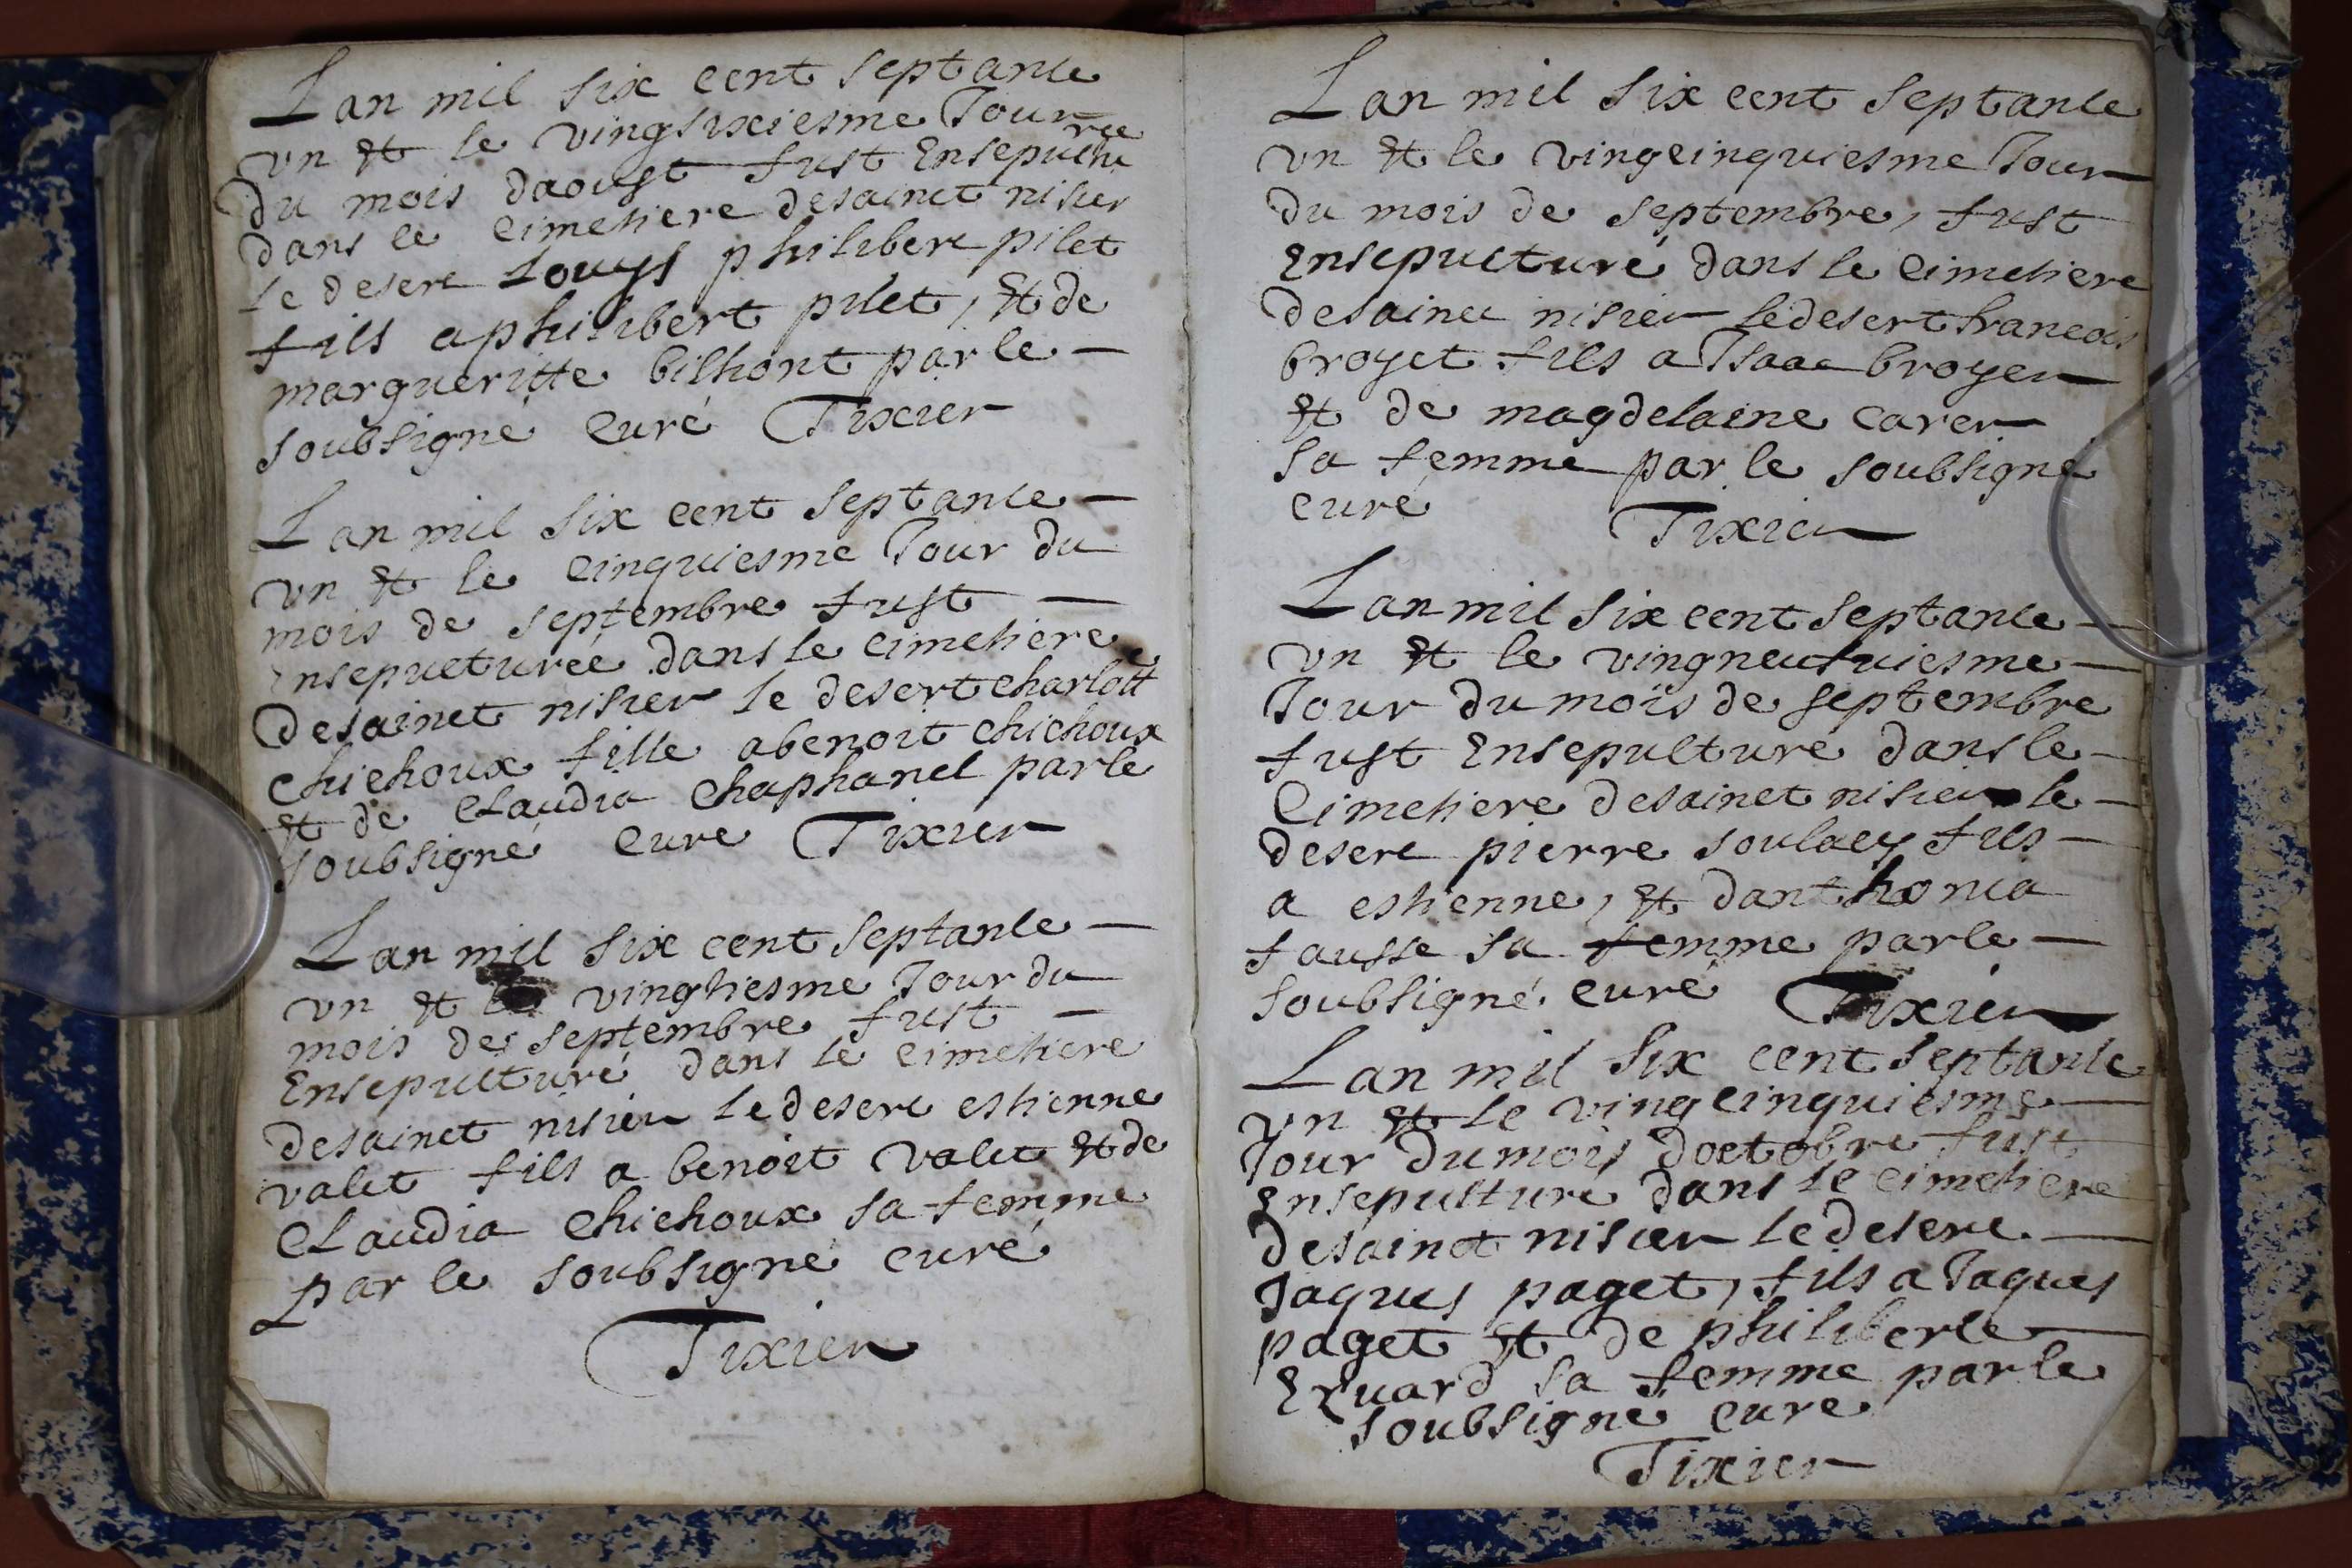 Lan mil six cent septante
vn et le vingsixiesme Jour
du mois daoust fust Ensepultu
rée
dans le cimetiere desainct nisier
le desert Louys philibert pilet
fils aphilibert pilet, et de
margueritte bilhont parle
soubsigné Curé Tixier
Lan mil six cent septante
vn et le cinquiesme Jour du
mois de septembre fust
ensepulturée dans le cimetiere
desainct nisier le desert charlotte
chichoux fille abenoit chichoux
et de Claudia Chaphanel parle
soubsigné Curé Tixier
Lan mil six cent septante
vn et le vingtiesme Jour du
mois de septembre fust
Ensepulturé dans le cimetiere
desainct nisier le desert estienne
valet fils a benoit valet et de
Claudia Chichoux sa femme
par le soubsigné curé
Tixier
Lan mil six cent septante
vn et le vingcinquiesme Jour
du mois de septembre, fust
Ensepulturé dans le Cimetiere
desainct nisier le desert francois
broyet fils a Isaac broyer
et de magdelaine carer
sa femme par le soubsigné
curé
Tixier
Lan mil six cent septante
vn et le vingneufviesme
Jour du mois de septembre
fust Ensepulturé dans le
Cimetiere desainct nisier le
desert pierre soulacy fils
a estienne, et danthonia
fausse sa femme parle
soubsigné curé Tixier
Lan mil six cent septante
vn et le vingcinquiesme
Jour du mois doctobre fust
Ensepulturé dans le cimetiere
desainct nisier le desert
Jaques paget, fils a Jaques
paget et de philiberte
Evuard sa femme parle
soubsigné curé
Tixier